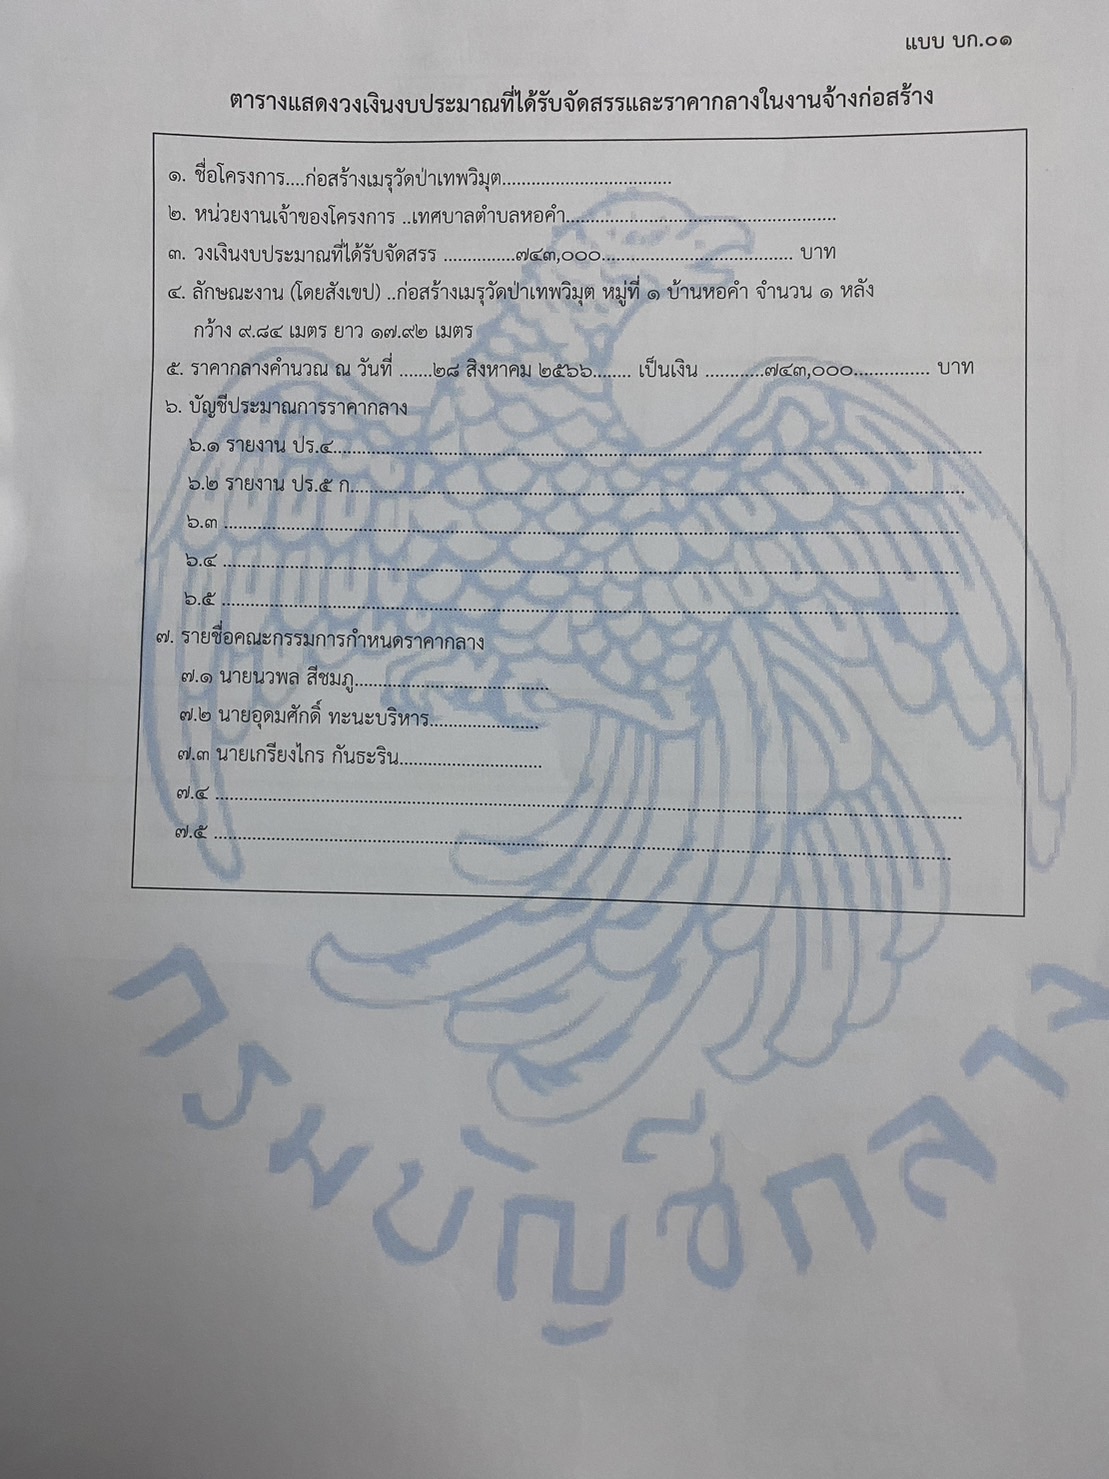 แบบ บก.๐๑
ตารางแสดงวงเงินงบประมาณที่ได้รับจัดสรรและราคากลางในงานจ้างก่อสร้าง
๑. ชื่อโครงการ....ก่อสร้างเมรุวัดป่าเทพวิมุต...................................
๒. หน่วยงานเจ้าของโครงการ ..เทศบาลตำบลหอคำ........................................................
๓. วงเงินงบประมาณที่ได้รับจัดสรร ...............๗๔๓,๐๐๐........................................ บาท
๔. ลักษณะงาน (โดยสังเขป) ..ก่อสร้างเมรุวัดป่าเทพวิมุต หมู่ที่ ๑ บ้านหอคำ จำนวน ๑ หลัง
กว้าง ๙.๘๔ เมตร ยาว ๑๗.๙๒ เมตร
๕. ราคากลางคำนวณ ณ วันที่ .......๒๘ สิงหาคม ๒๕๖๖........ เป็นเงิน ............๗๔๓,๐๐๐................ บาท
๖. บัญชีประมาณการราคากลาง
๖.๑ รายงาน ปร.๔........................................................................................................
๖.๒ รายงาน ปร.๕ ก....................................................................................................
๖.๓ ........................................................................................................................
๖.๔ ........................................................................................................................
๖.๕ ........................................................................................................................
๗. รายชื่อคณะกรรมการกำหนดราคากลาง
๗.๑ นายนวพล สีชมภู........................................
๗.๒ นายอุดมศักดิ์ ทะนะบริหาร.......................
๗.๓ นายเกรียงไกร กันธะริน..............................
๗.๔ ........................................................................................................................
๗.๕ ........................................................................................................................
กรมบัญชีกลาง